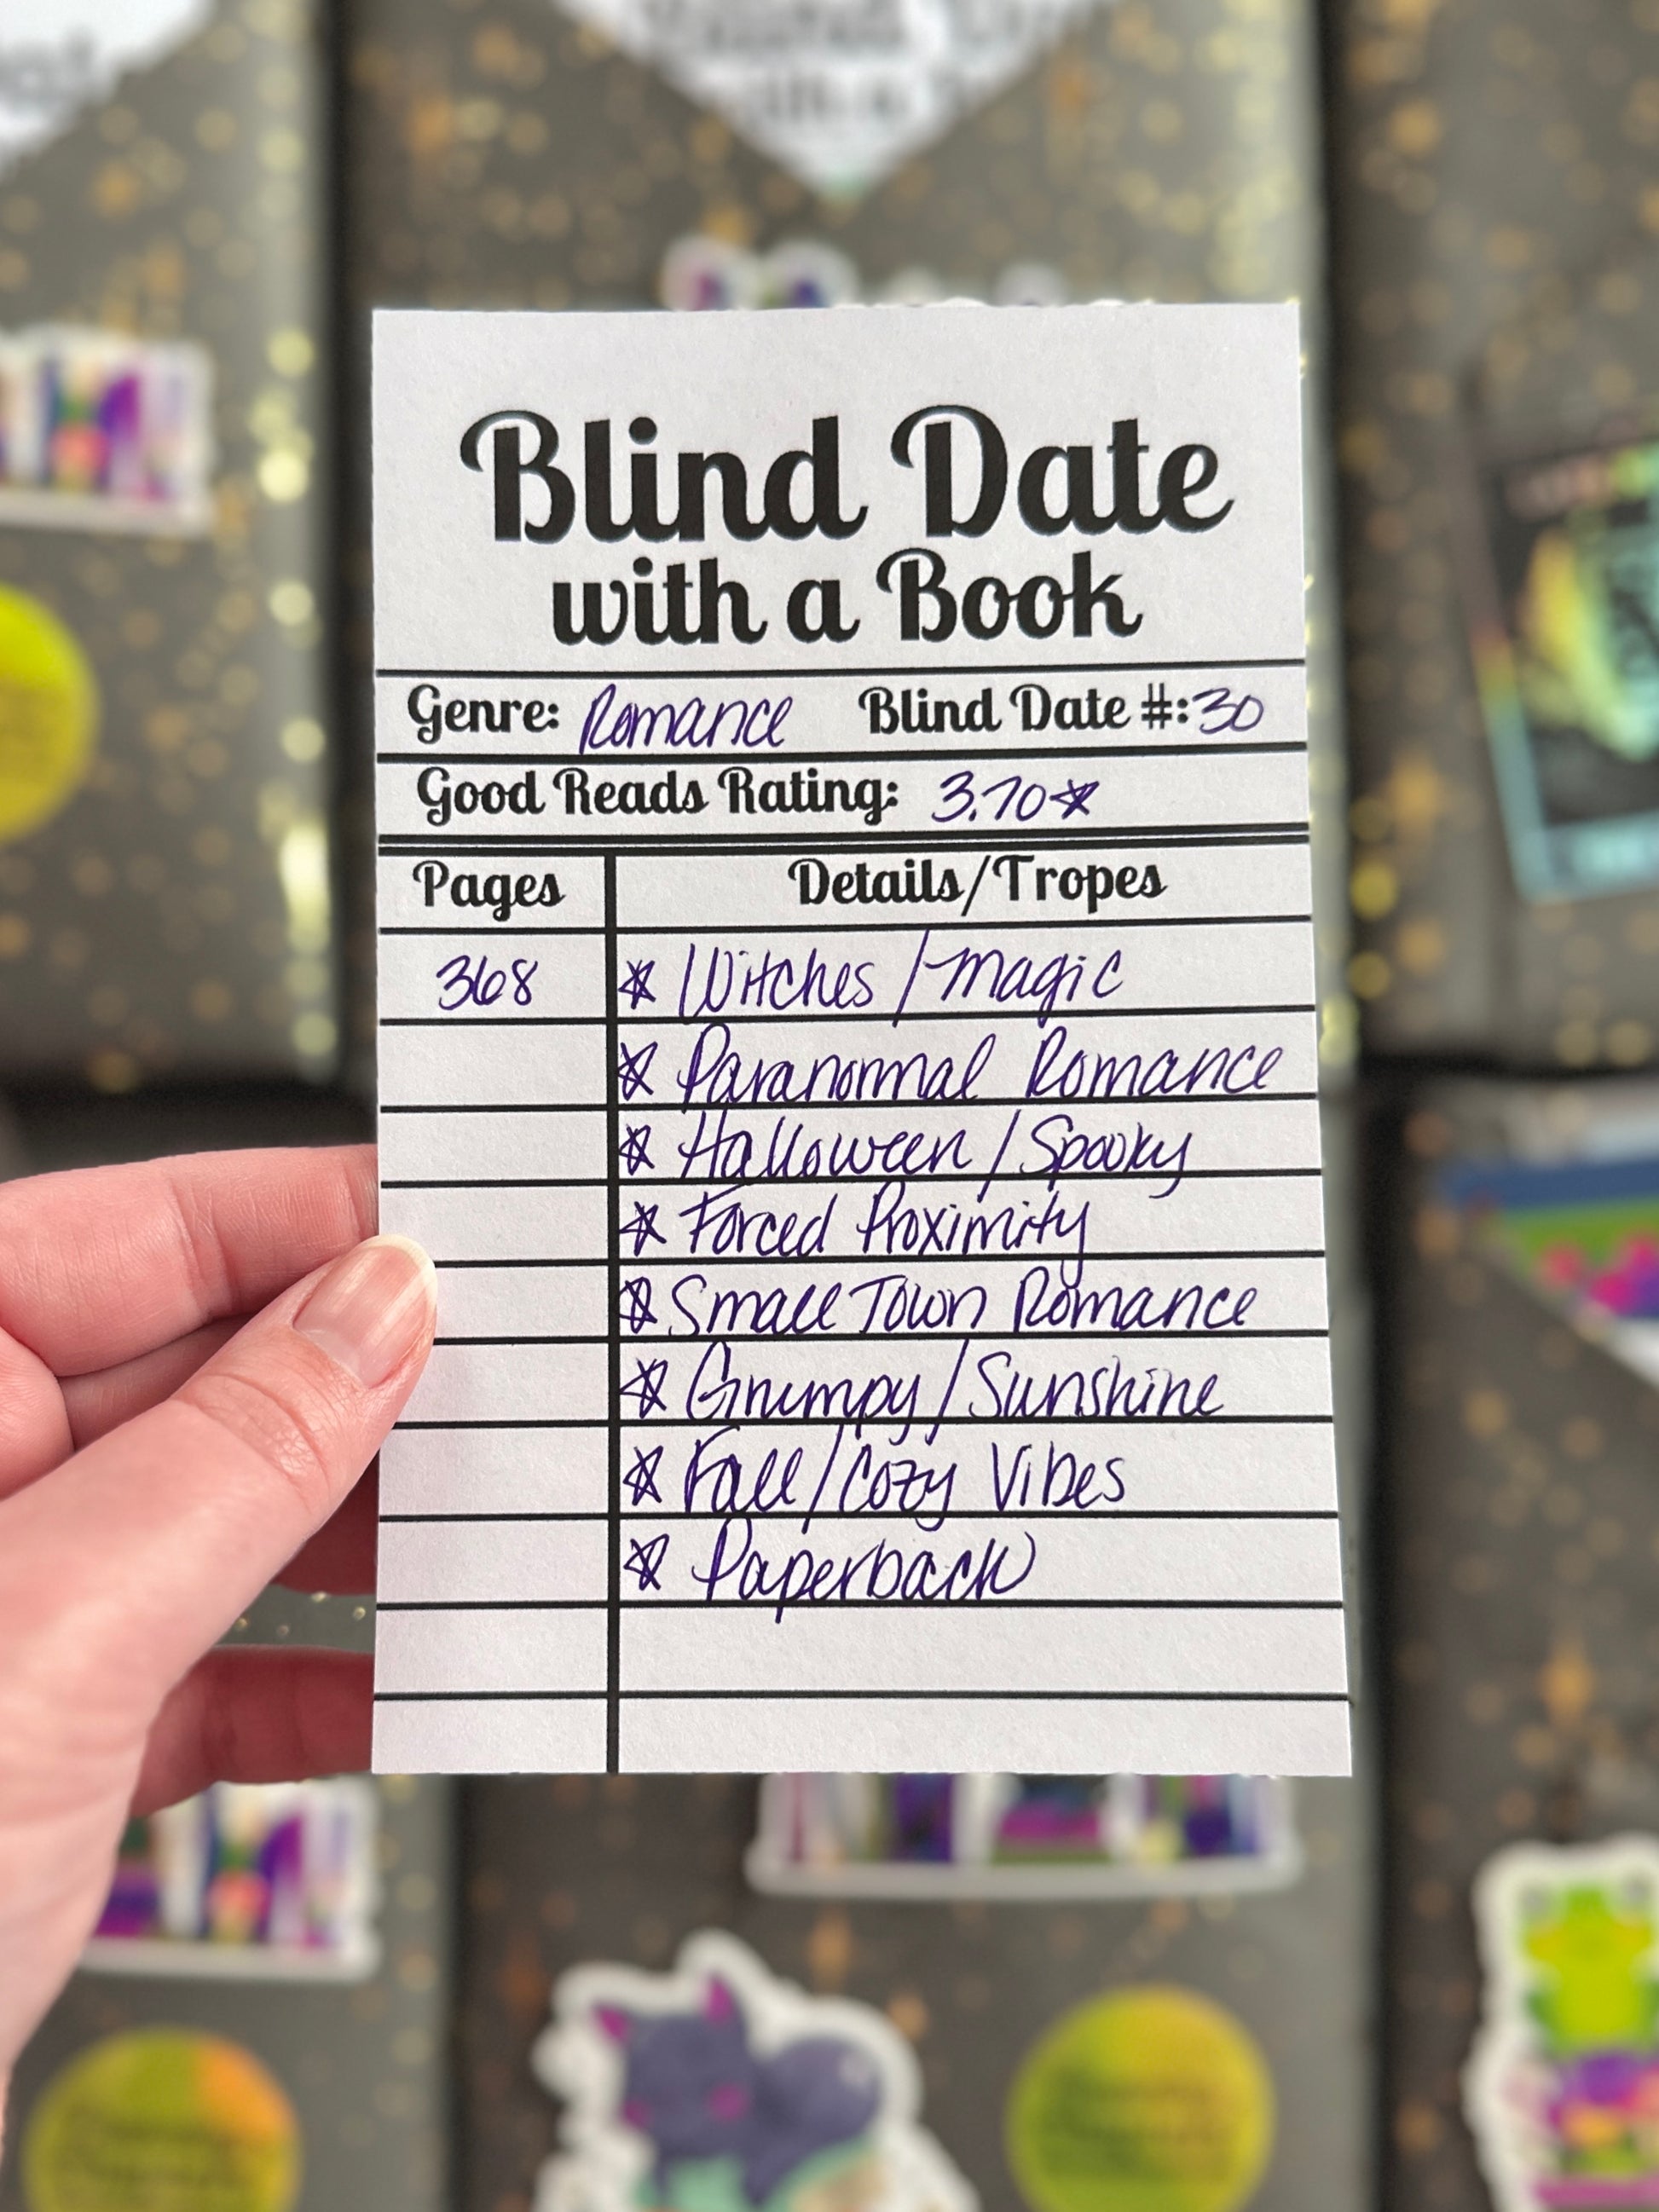 Blind Date
with a Book
Genre: Romance Blind Date #: 30
Good Reads Rating: 3.70☆
Pages Details/Tropes
368 ☆ Witches / Magic
☆ Paranormal Romance
☆ Halloween / Spooky
☆ Forced Proximity
☆ Small Town Romance
☆ Grumpy / Sunshine
☆ Fall / Cozy Vibes
☆ Paperback